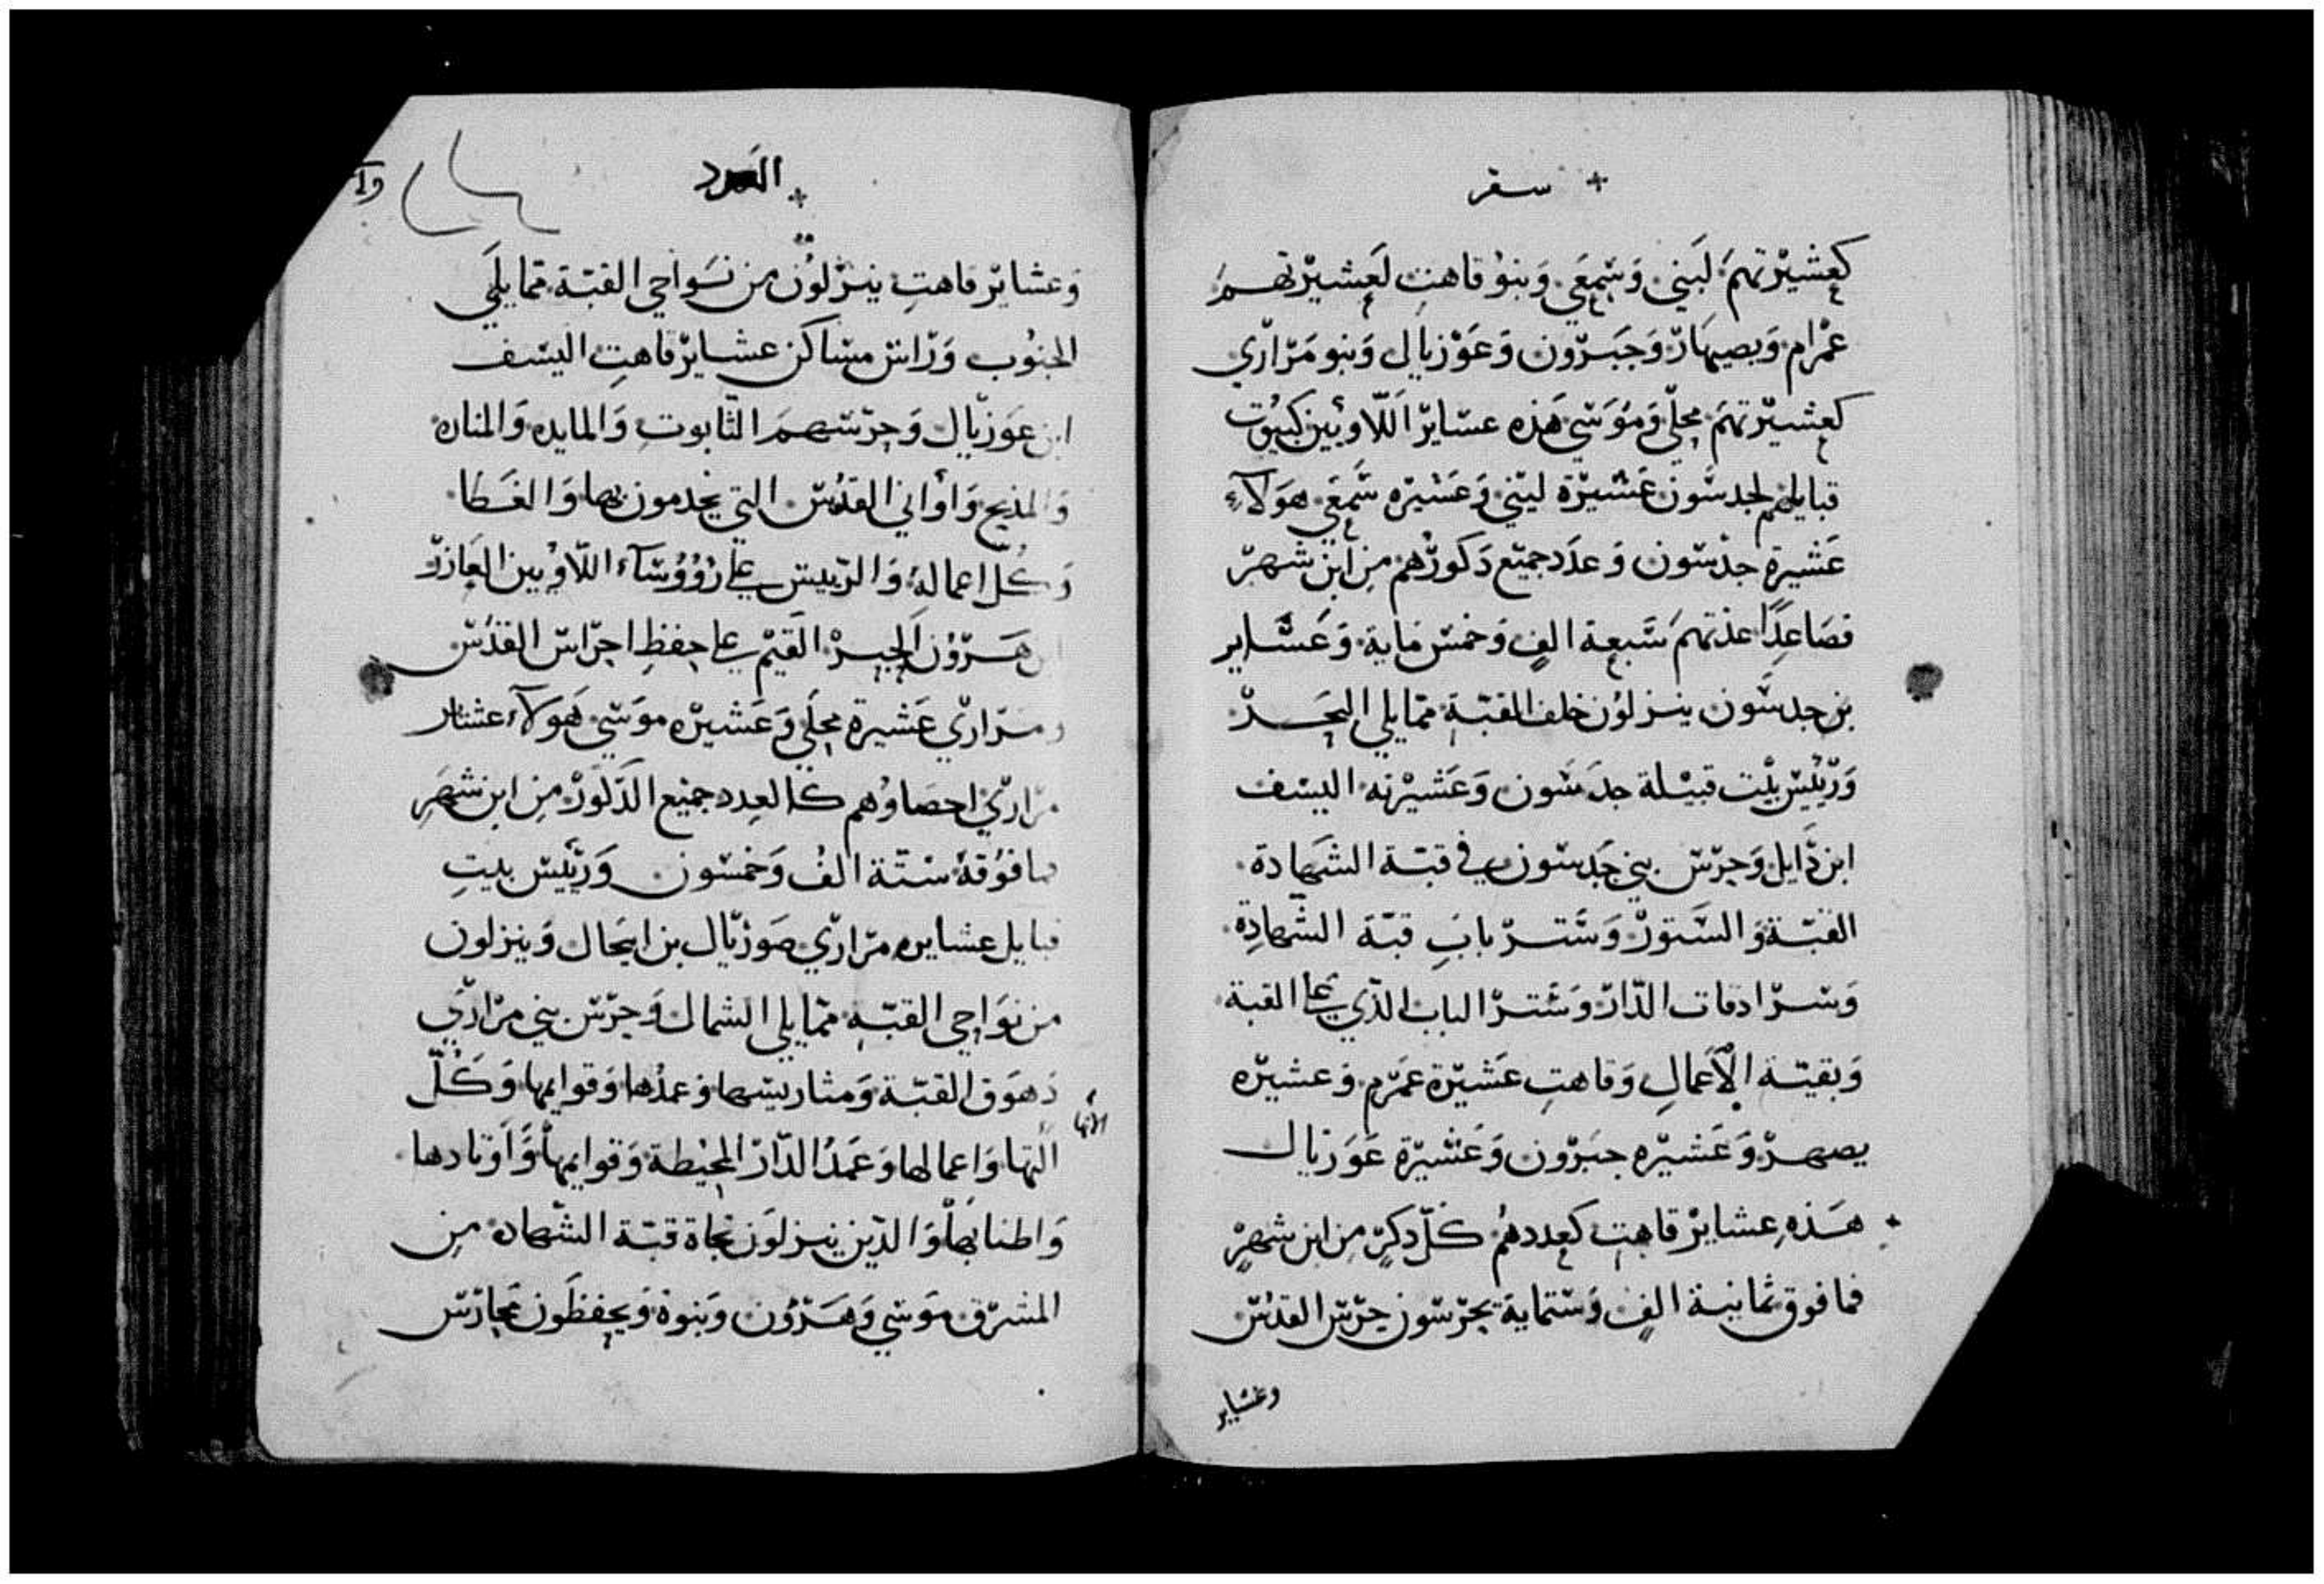 + سفر
كعشيرتهم لبني وسمعي وبنو قاهت لعشيرتهم
عمرام ويصهار وجبرون وعوزيال وبنو مراري
كعشيرتهم محلي وموسي هذه عساير اللاويين كبيوت
قبايلهم لجدسون عشيرة ليني وعشيره سمعي هولاء
عشيرة جدسون وعدد جميع دكورهم من ابن شهر
فصاعدا عدتهم سبعة الف وخمس ماية وعشاير
بن جدسون ينزلون خلف القبة مما يلي البحر
ورييس بيت قبيلة جدسون وعشيرته اليسف
ابن دايل وحرس بني جدسون في قبة الشهادة
القبة والستور وستر باب قبة الشهادة
وسرادقات الدار وستر الباب الذي علي القبة
وبقية الاعمال وقاهت عشيرة عمرم وعشيره
يصهر وعشيره حبرون وعشيرة عوزيال
هذه عشاير قاهت كعددهم كل دكر من ابن شهر
فما فوق ثمانية الف وستماية يحرسون حرس القدس
وعشاير
+ العدد
وعشاير قاهت ينزلون من نواحي القبة مما يلي
الجنوب وراس مساكن عشاير قاهت اليسف
ابن عوزيال وحرسهم التابوت والمايده والمناره
والمذبح واواني القدس التي يخدمون بها والغطا
وكل اعماله والرييس علي روؤساء اللاويين العازر
ابن هرون الحبر القيم علي حفظ احراس القدس
ومراري عشيرة محلي وعشيره موسي هولاء عشاير
مراري احصاوهم كالعدد جميع الدكور من ابن شهر
فما فوقه ستة الف وخمسون ورييس بيت
قبايل عشايره مراري صوريال بن ابيحال وينزلون
من نواحي القبه مما يلي الشمال وحرس بني مراري
دهوق القبة ومتاريسها وعمدها وقوايمها وكل
التها واعمالها وعمد الدار المحيطة وقوايمها واوتادها
واطنابها والدين ينزلون تجاة قبة الشهاده من
المشرق موسي وهرون وبنوة ويحفظون محارس